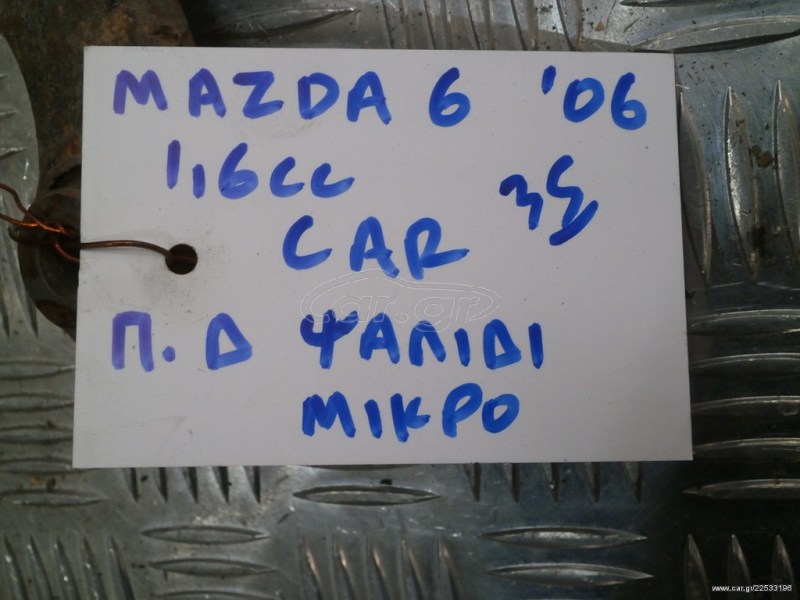 MAZDA 6 '06
1,6cc
CAR
Π.Δ ΨΑΛΙΔΙ
ΜΙΚΡΟ
car.gr
www.car.gr/22533196